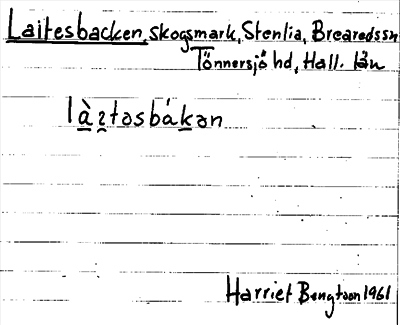 Laitesbacken, Skogsmark, Stenlia, Brearedssn
Tönnersjö hd, Hall. län
làɪ̯təsbákən
Harriet Bengtson 1961